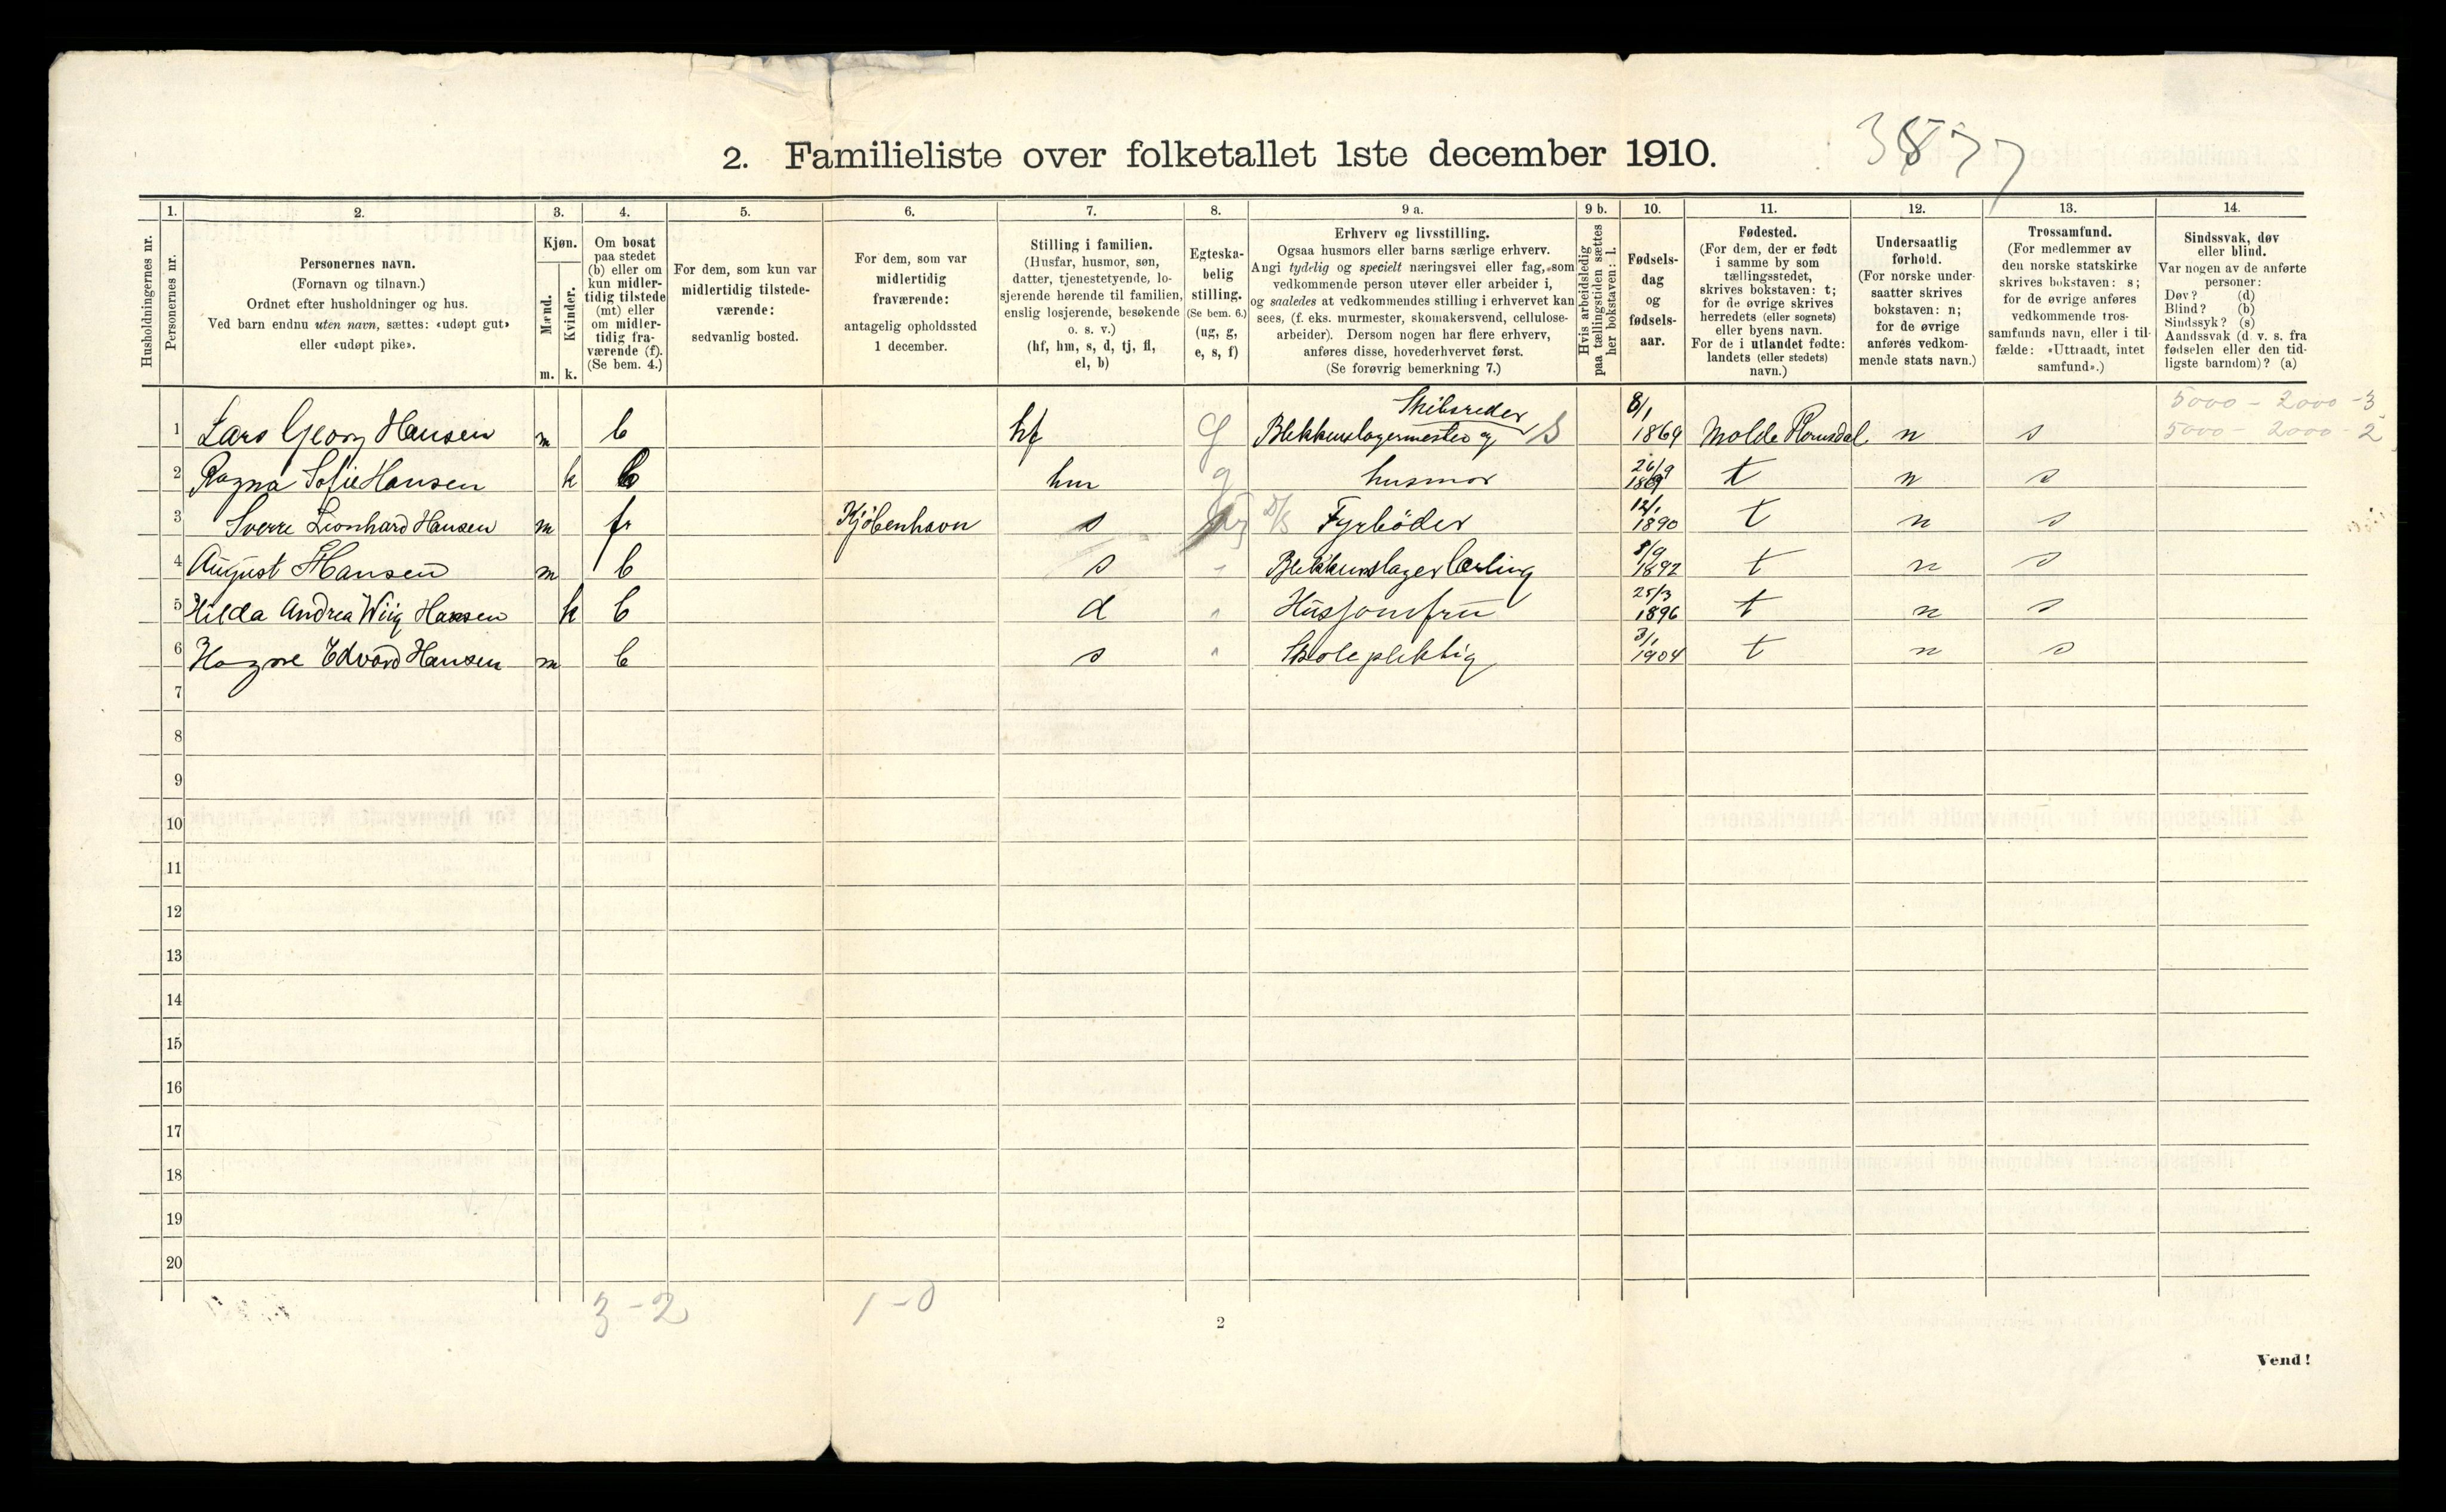 2. Familieliste over folketallet 1ste december 1910.
3877
Husholdningernes nr.
1.
Personernes nr.
2.
Personernes navn.
(Fornavn og tilnavn.)
Ordnet efter husholdninger og hus.
Ved barn endnu uten navn, sættes: «udøpt gut»
eller «udøpt pike».
3.
Kjøn.
Mænd.
Kvinder.
m. k.
4.
Om bosat
paa stedet
(b) eller om
kun midler-
tidig tilstede
(mt) eller
om midler-
tidig fra-
værende (f).
(Se bem. 4.)
5.
For dem, som kun var
midlertidig tilstede-
værende:
sedvanlig bosted.
6.
For dem, som var
midlertidig
fraværende:
antagelig opholdssted
1 december.
7.
Stilling i familien.
(Husfar, husmor, søn,
datter, tjenestetyende, lo-
sjerende hørende til familien,
enslig losjerende, besøkende
o. s. v.)
(hf, hm, s, d, tj, fl,
el, b)
8.
Egteska-
belig
stilling.
(Se bem. 6.)
(ug, g,
e, s, f)
9 a.
Erhverv og livsstilling.
Ogsaa husmors eller barns særlige erhverv.
Angi tydelig og specielt næringsvei eller fag, som
vedkommende person utøver eller arbeider i,
og saaledes at vedkommendes stilling i erhvervet kan
sees, (f. eks. murmester, skomakersvend, cellulose-
arbeider). Dersom nogen har flere erhverv,
anføres disse, hovederhvervet først.
(Se forøvrig bemerkning 7.)
9 b.
Hvis arbeidsledig
paa tællingstiden sættes
her bokstaven: l.
10.
Fødsels-
dag
og
fødsels-
aar.
11.
Fødested.
(For dem, der er født
i samme by som
tællingsstedet,
skrives bokstaven: t;
for de øvrige skrives
herredets (eller sognets)
eller byens navn.
For de i utlandet fødte:
landets (eller stedets)
navn.)
12.
Undersaatlig
forhold.
(For norske under-
saatter skrives
bokstaven: n;
for de øvrige
anføres vedkom-
mende stats navn.)
13.
Trossamfund.
(For medlemmer av
den norske statskirke
skrives bokstaven: s;
for de øvrige anføres
vedkommende tros-
samfunds navn, eller i til-
fælde: «Uttraadt, intet
samfund».)
14.
Sindssvak, døv
eller blind.
Var nogen av de anførte
personer:
Døv? (d)
Blind? (b)
Sindssyk? (s)
Aandssvak (d. v. s. fra
fødselen eller den tid-
ligste barndom)? (a)
Skibsreder 8/1 5000 - 2000 - 3
1 Lars Georg Hansen m b hf g Blekkenslagermester og S 1869 Molde Romsdal n s 5000 2000 - 2
26/9
2 Ragna Sofie Hansen k b hm g husmor 1869 t n s
12/1
3 Sverre Leonhard Hansen m fr Kjöbenhavn s ug D/S Fyrböder 1890 t n s
5/9
4 August Hansen m b s - Blekkenslager Lærling 1892 t n s
25/3
5 Hilda Andrea Wiig Hansen k b d " Husjomfru 1896 t n s
3/1
6 Hagne Edvard Hansen m b s " Skolepliktig 1904 t n s
7
8
9
10
11
12
13
14
15
16
17
18
19
20
3 - 2 1 - 0
2
Vend!